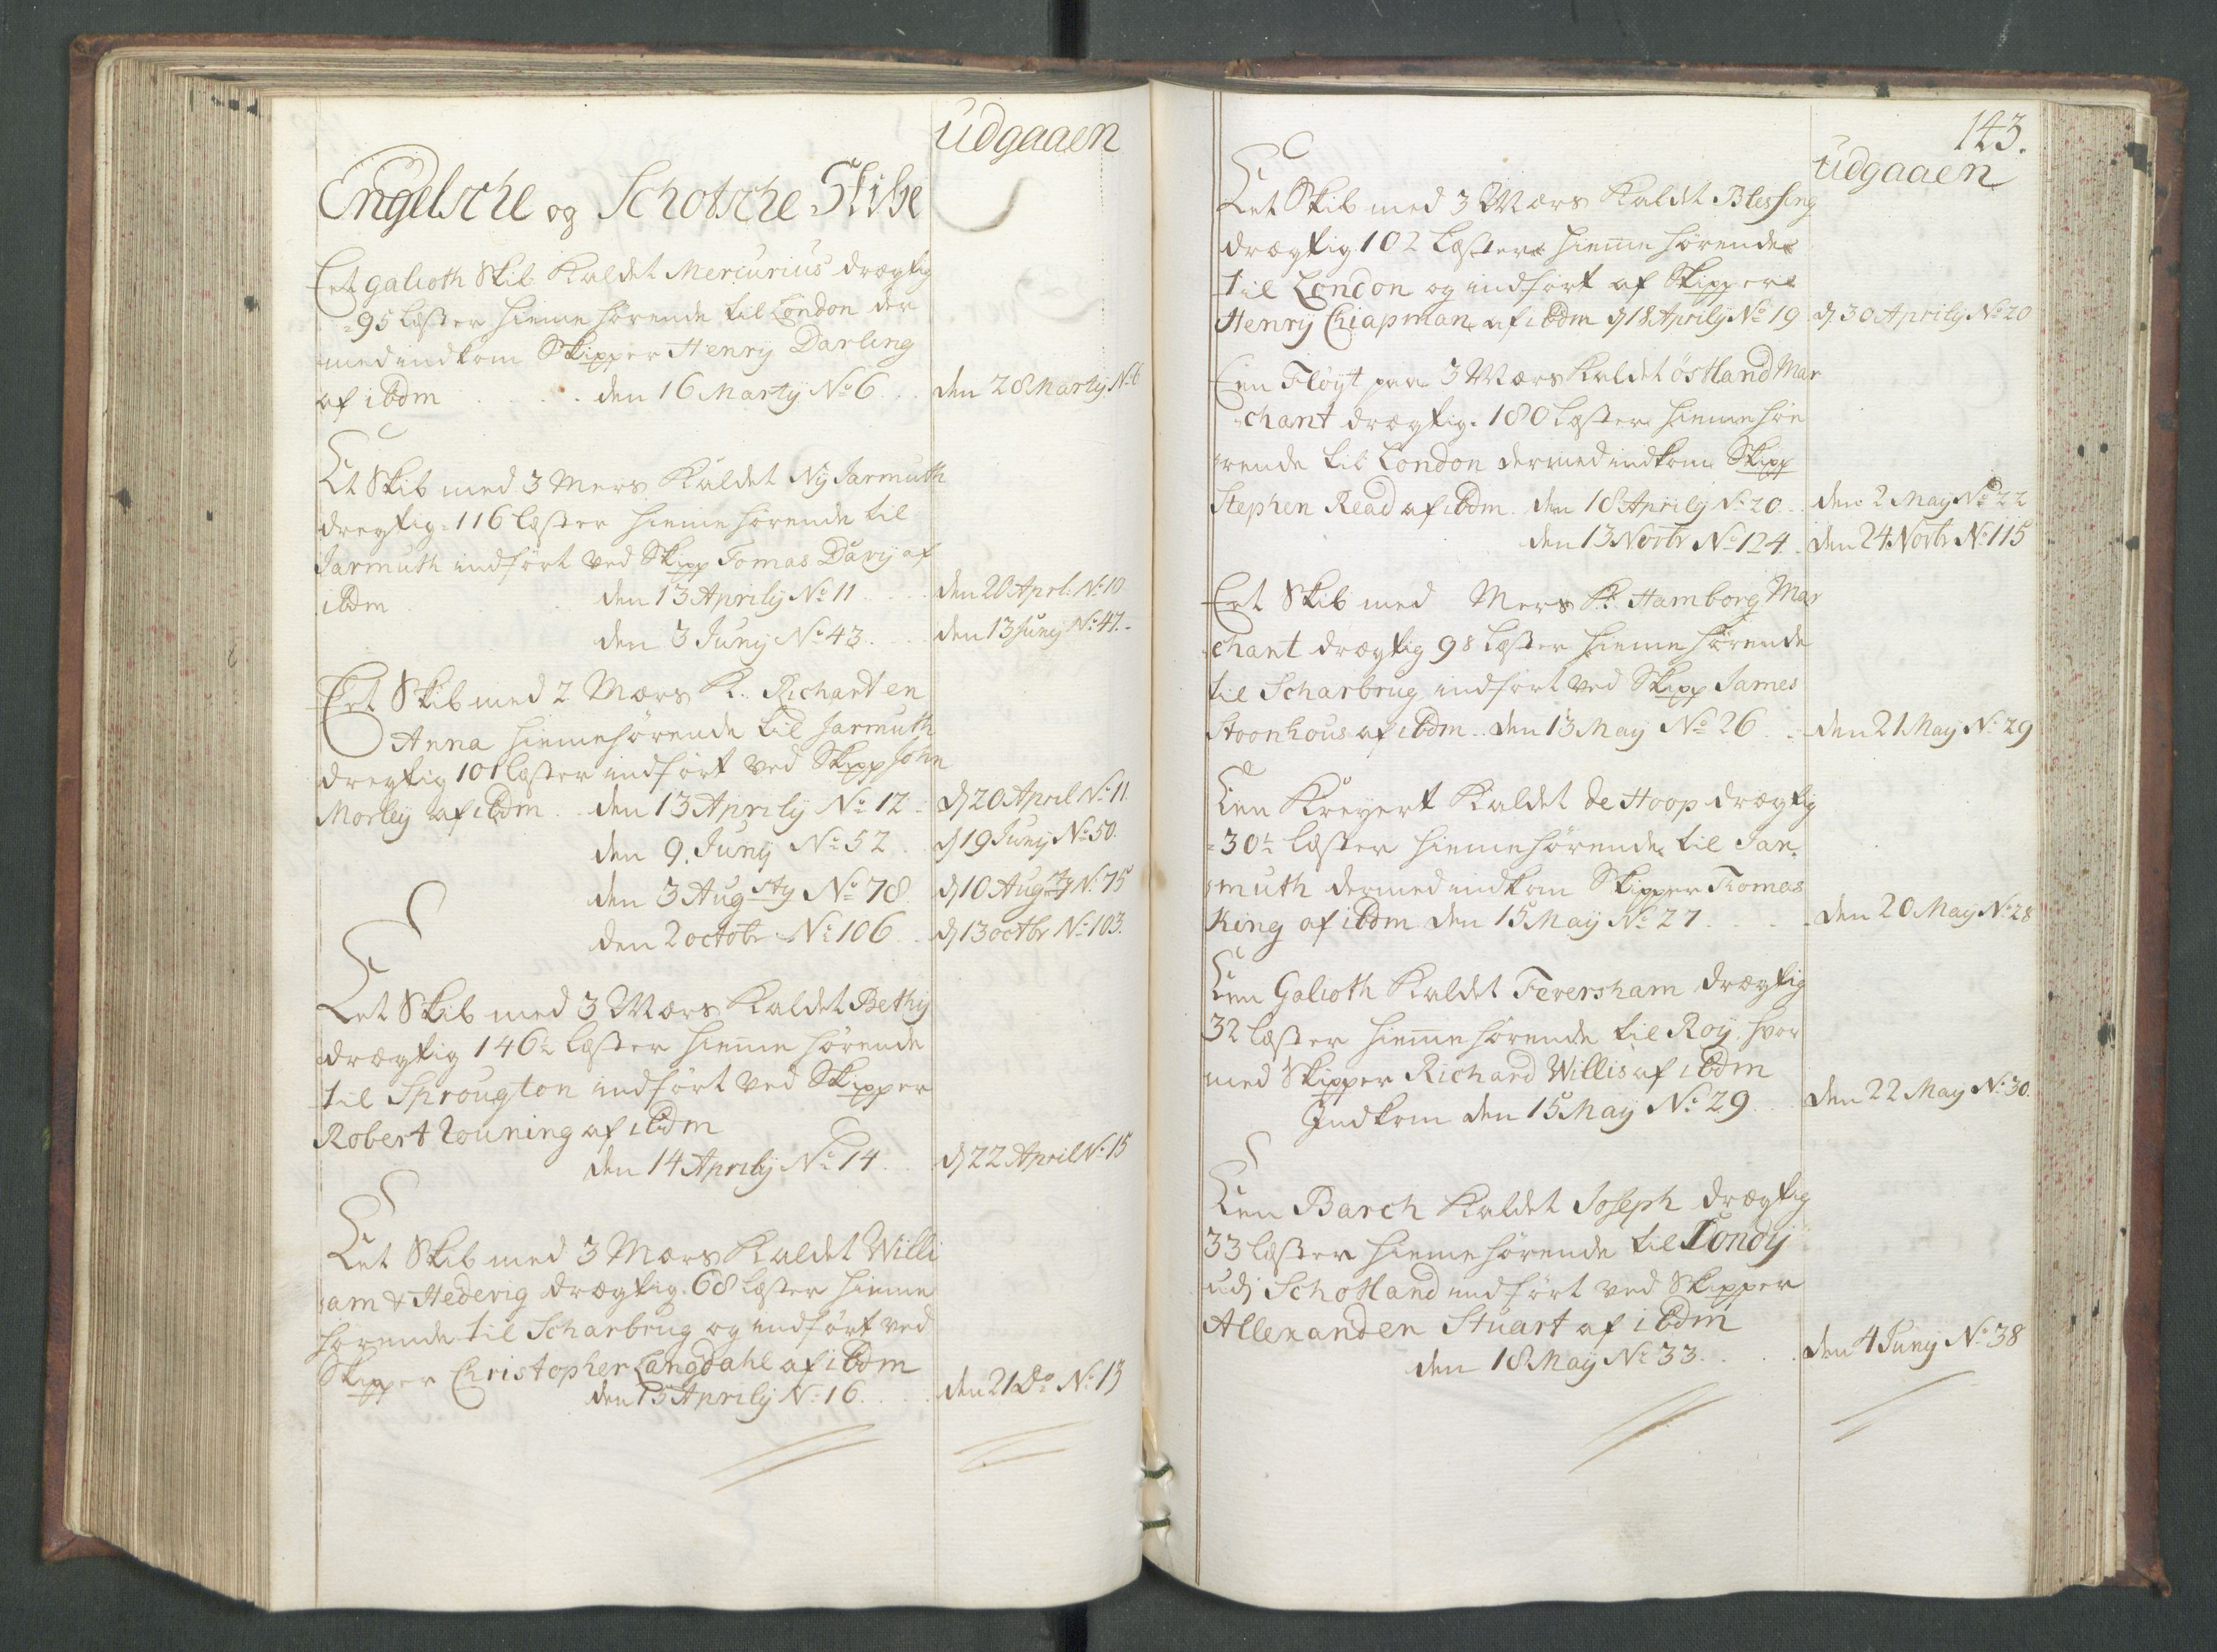 udgaaen
Engelsche og Schotsche Skibe
Eet galioth Skib Kaldet Mercurius drægtig
95 læster hiemehørende til London der
med indkom Skipper Henrÿ Darling
af ibdm . . . . den 16 Martÿ No 6 . . den 28 Martÿ No 6
Et Skib med 3 Mers Kaldet Nÿ Jarmuth
dregtig 116 læster hiemehørende til
Jarmuth indført ved Skipp Tomas Davÿ af
ibdm . . den 13 Aprilÿ No 11 . . . den 20 Aprl: No 10
den 3 Junÿ No 43 . . . den 13 Junÿ No 47.
Eet Skib med 2 Mærs K. Richard en
Anna hiemehørende til Jarmuth
dregtig 101 læster indført ved Skipp John
Morleÿ af ibdm . . den 13 Aprilÿ No 12 . d 20 April No 11
den 9. Junÿ No 52 . . d 19 Junÿ No 50.
den 3 Augsty No 78 . d 10 Augsty No 75
den 2 octobr No 106 . . d 13 octbr No 103.
Eet Skib med 3 Mærs Kaldet Bethÿ
drægtig 146½ læster hiemehørende
til Sprougton indført ved Skipper
Robert Youning af ibdm
den 14 Aprilÿ No 14 . . d 22 April No 15
Eet Skib med 3 Mærs Kaldet Willi
am & Hedevig drægtig 68 læster hieme
hørende til Scharbrug og indført ved
Skipper Christopher Langdahl af ibdm
den 15 Aprilÿ No 16 . . . den 21 Do No 13
143.
udgaaen
Eet Skib med 3 Mærs Kaldet Blessing
drægtig 102 læster hiemehørende
til London og indført af Skipper
Henrÿ Chiapman af ibdm d 18 Aprilÿ No 19 d. 30 Aprilÿ No 20
Een Fløyt paa 3 Mærs Kaldet östland Mar
chant drægtig 180 læster hiemehøe
rende til London dermed indkom Skipp
Stephen Read af ibdm den 18 Aprilÿ No 20 . . den 2 Maÿ No 22
den 13 Novbr No 124 . den 24 Novbr No 115
Eet Skib med Mers K. Hamborg Mar
chant drægtig 98 læster hiemehørende
til Scharbrug indført ved Skipp James
Stoonhous af ibdm . . den 13 Maÿ No 26 . . den 21 Maÿ No 29
Een Kreyert Kaldet de Hoop drægtig
30½ læster hiemehørende til Jar
muth dermed indkom Skipper Thomas
King af ibdm den 15 Maÿ No 27 . . . . den 20 Maÿ No 28
Een Galioth Kaldet Feversham drægtig
32 læster hiemehørende til Roÿ, hvor
med Skipper Richard Willis af ibdm
Indkom den 15 Maÿ No 29 . . den 22 Maÿ No 30.
Een Barch Kaldet Joseph drægtig
33 læster hiemehørende til Londÿ
udj Schotland indført ved Skipper
Allexander Stuart af ibdm
den 18 Maÿ No 33 . . . . den 4 Junÿ No 38